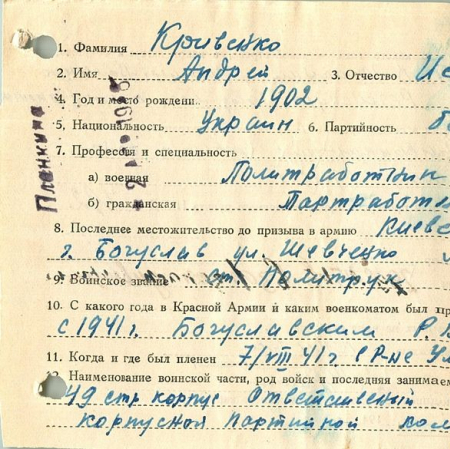 1. Фамилия Кривенко
2. Имя Андрей 3. Отчество Ис
4. Год и место рождени 1902
5. Национальность Украин 6. Партийность
7. Профессия и специальность
а) военная Политработник
б) гражданская Партработн
8. Последнее местожительство до призыва в армию Киевс
г. Богуслав ул. Шевченко
9. Воинское звание ст. Политрук
10. С какого года в Красной Армии и каким военкоматом был пр
с 1941 г. Богуславским Р.
11. Когда и где был пленен 7/VIII 41 г. в Р-не Ум
Наименование воинской части, род войск и последняя занимаем
49 стр. корпус Ответственый
корпусной партийной ком
Пленкина